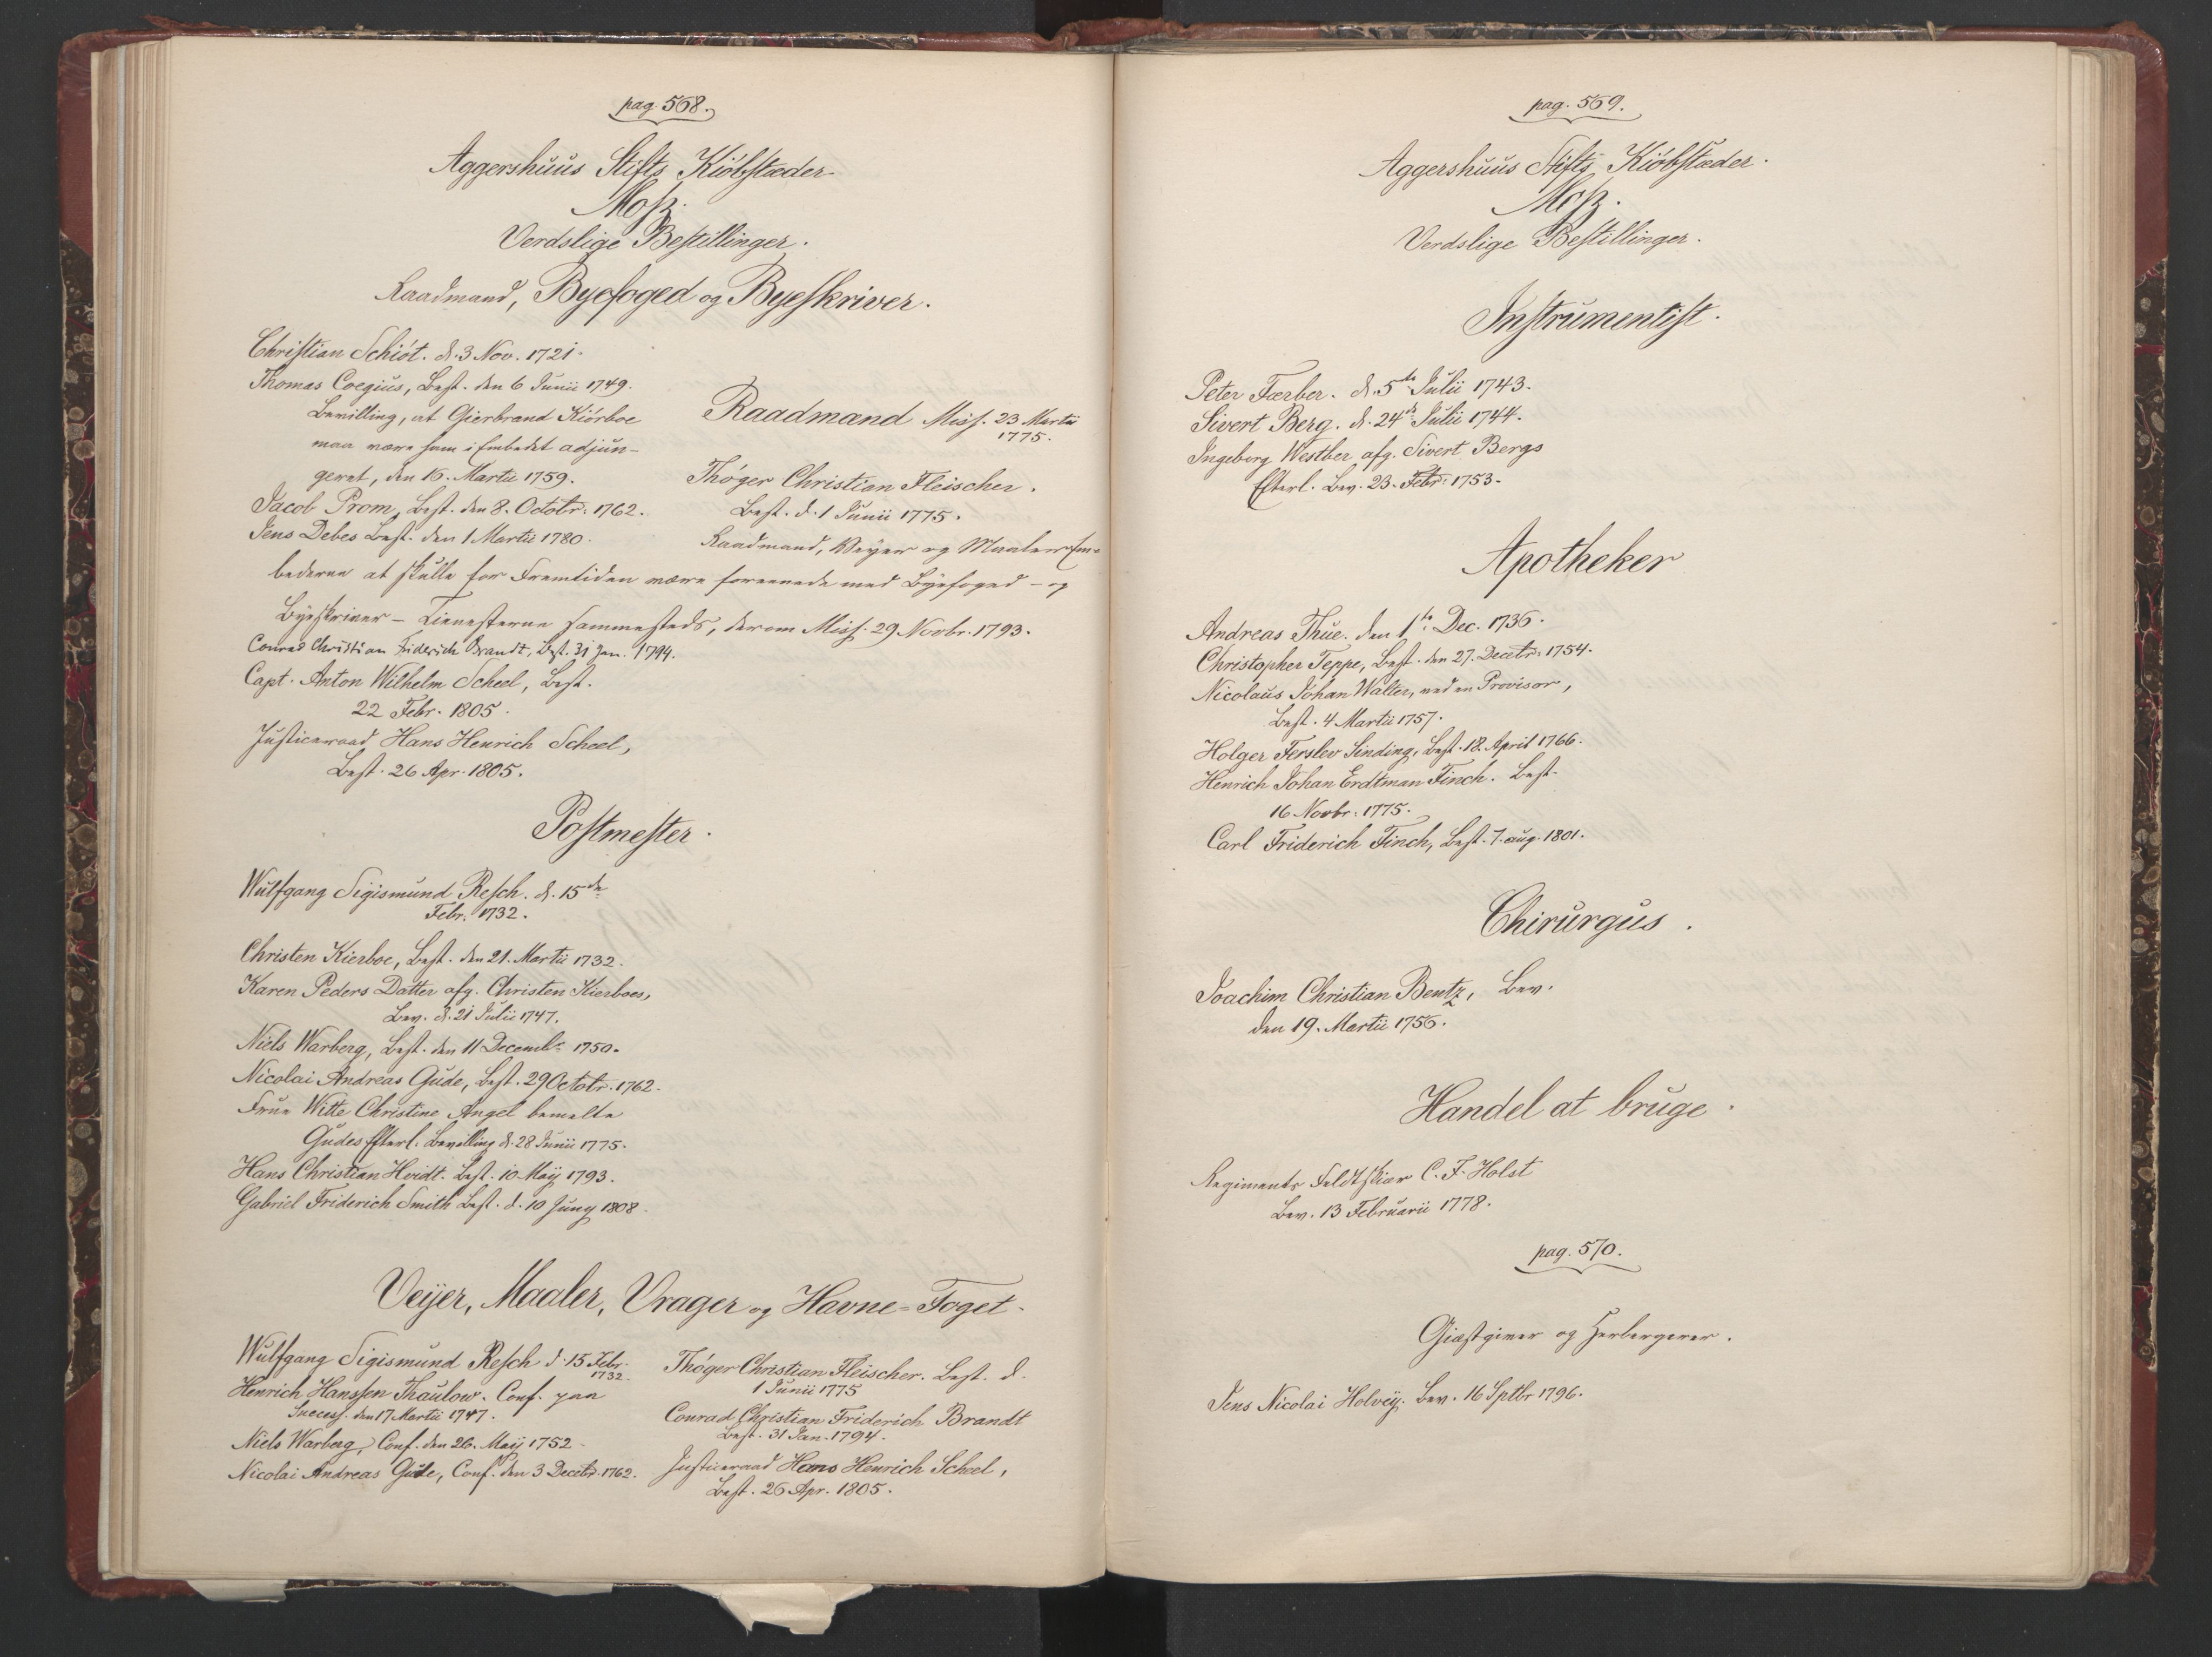 pag. 568.
Aggershuus Stifts Kiöbstæder
Mosz.
Verdslige Bestillinger.
Raadmand, Byefoged og Byeskriver.
Christian Schiöt. d. 3 Nov. 1721.
Thomas Coegius, Best. den 6 Junii 1749.
Bevilling, at Gierbrand Kiörboe
maa være ham i Embedet adjun-
geret, den 16. Martii 1759.
Jacob Prom, Best. den 8. Octobr. 1762.
Jens Debes Best. den 1 Martii 1780.
Raadmænd Miss. 23 Martii
1775.
Thöger Christian Fleischer.
Best. d. 1 Junii 1775.
Raadmand, Veyer og Maaler Em-
bederne at skulle for Fremtiden være foreenede med Byefoged - og
Byeskriver - Tienesterne sammesteds, derom Miss. 29 Novbr. 1793.
Conrad Christian Friderich Brandt, Best. 31 Jan. 1794.
Capt. Anton Wilhelm Scheel, Best.
22 Febr. 1805.
Justiceraad Hans Henrich Scheel,
Best. 26 Apr. 1805.
Postmester.
Wulfgang Sigismund Resch. d. 15de
Febr. 1732.
Christen Kierboe, Best. den 21. Martii 1732.
Karen Peders Datter afg. Christen Kierboes,
Bev. d. 21 Julii 1747.
Niels Warberg, Best. den 11 Decembr 1750.
Nicolai Andreas Gude, Best. 29 Octobr. 1762.
Frue Witte Christine Angel bemelte
Gudes Efterl. Bevilling d. 28 Junii 1775.
Hans Christian Hvidt. Best. 10 Maij 1793.
Gabriel Friderich Smith Best. d. 10 Juny 1808.
Veijer, Maaler, Vrager og Havne=Foget.
Wulfgang Sigismund Resch d. 15 Febr.
1732.
Henrich Hanssen Thaulow. Conf. paa
Success. den 17 Martii 1747.
Niels Warberg, Conf. den 26. Maij 1752.
Nicolai Andreas Gude, Conf. den 3 Decebr. 1762.
Thöger Christian Fleischer. Best. d.
1 Junii 1775
Conrad Christian Friderich Brandt
Best. 31 Jan. 1794.
Justiceraad Hans Henrich Scheel,
Best. 26 Apr. 1805.
pag. 569.
Aggershuus Stifts Kiöbstæder.
Mosz.
Verdslige Bestillinger.
Instrumentist.
Peter Færber. d. 5te Julii 1743.
Sivert Berg. d. 24de Julii 1744.
Ingeborg Westber afg. Sivert Bergs
Efterl. Bev. 23. Febr. 1753.
Apotheker
Andreas Thue. den 1te Dec. 1736.
Christopher Teppe, Best. den 27. Decebr. 1754.
Nicolaus Johan Walter, ved en Provisor,
Best. 4 Martii 1757.
Holger Ferslev Sinding, Best. 18. April 1766.
Henrich Johan Erdtman Finch. Best.
16. Novbr. 1775.
Carl Friderich Finch, Best. 7. aug. 1801.
Chirurgus.
Joachim Christian Bentz, Bev.
den 19. Martii 1756.
Handel at bruge.
Regiments Feldtskiær C. F. Holst
Bev. 13 Februarii 1778.
pag. 570.
Giæstgiver og Herbergerer.
Jens Nicolai Holvey. Bev. 16 Sptbr 1796.